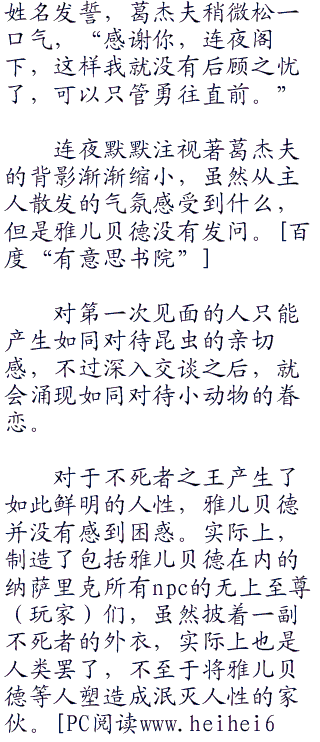 姓名发誓，葛杰夫稍微松一
口气，“感谢你，连夜阁
下，这样我就没有后顾之忧
了，可以只管勇往直前。”
连夜默默注视著葛杰夫
的背影渐渐缩小，虽然从主
人散发的气氛感受到什么，
但是雅儿贝德没有发问。[百
度“有意思书院”]
对第一次见面的人只能
产生如同对待昆虫的亲切
感，不过深入交谈之后，就
会涌现如同对待小动物的眷
恋。
对于不死者之王产生了
如此鲜明的人性，雅儿贝德
并没有感到困惑。实际上，
制造了包括雅儿贝德在内的
纳萨里克所有npc的无上至尊
（玩家）们，虽然披着一副
不死者的外衣，实际上也是
人类罢了，不至于将雅儿贝
德等人塑造成泯灭人性的家
伙。[PC阅读www.heihei6